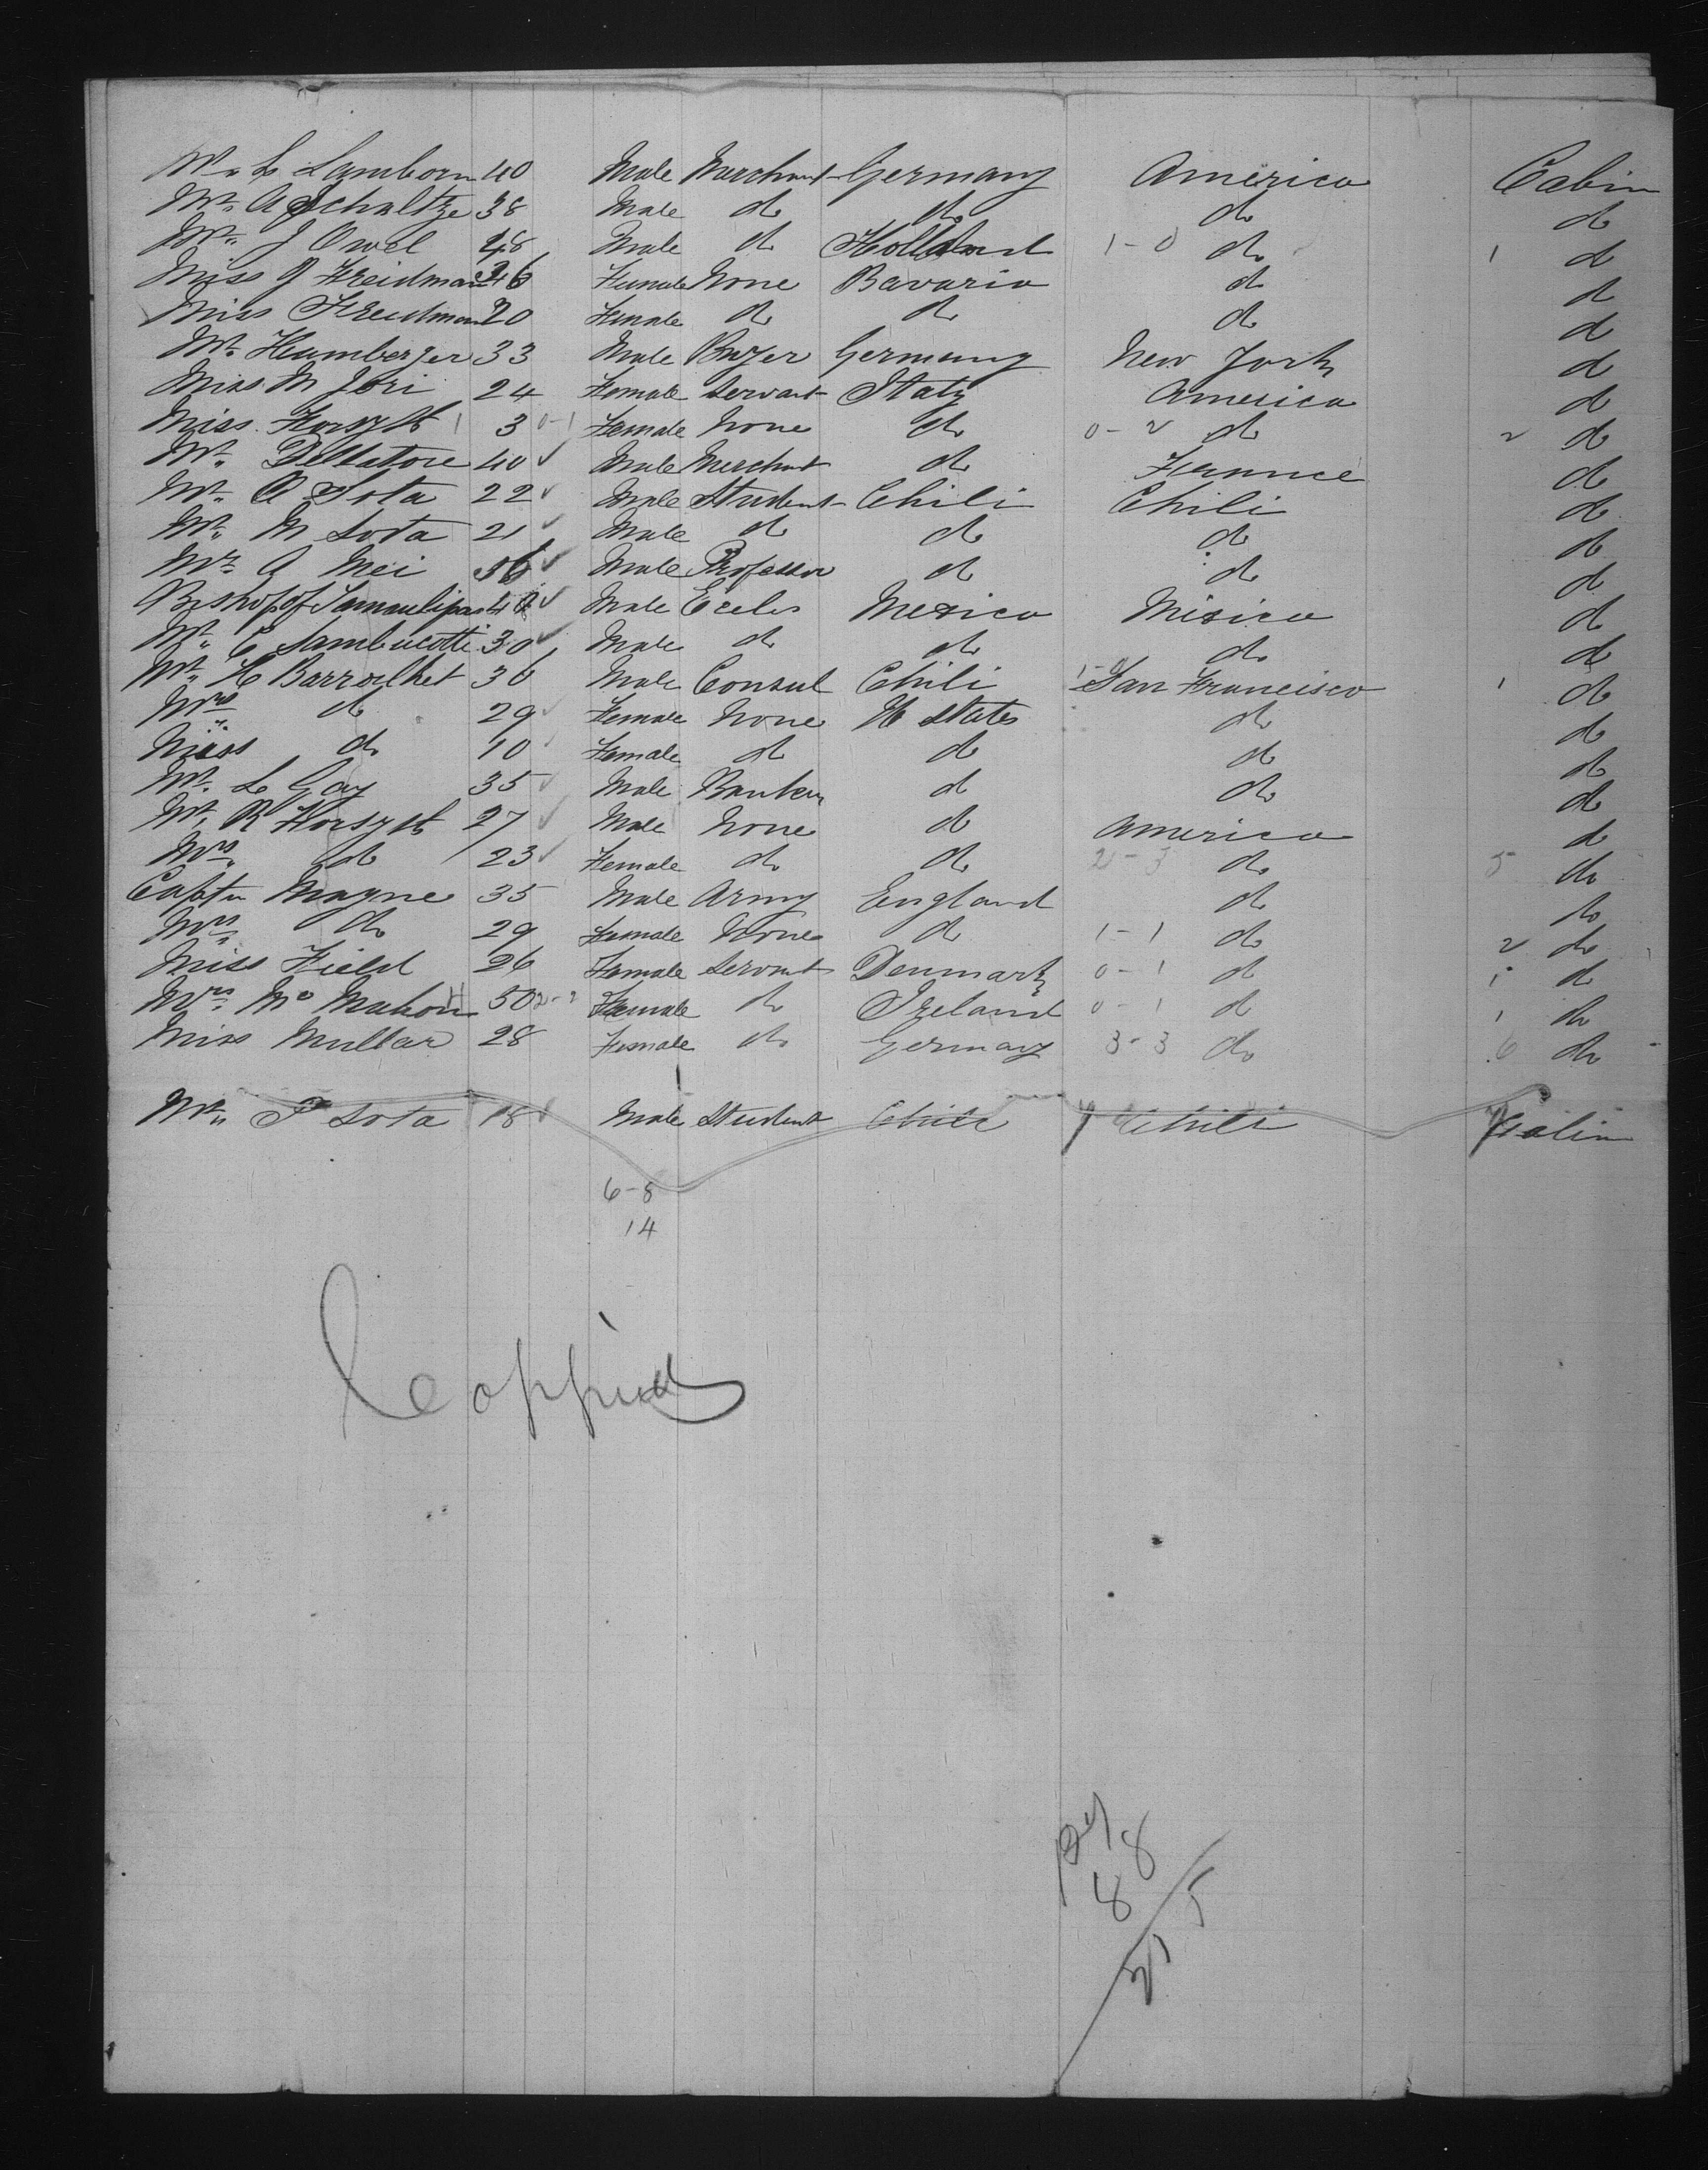 Mr. L Lamborn 40 Male Merchant Germany America Cabin
Mr. A Schaltze 38 Male do do do do
Mr. J Owel 48 Male do Holland 1-0 do 1 do
Miss Freidman Female None Bavaria do do
Miss Freidman 20 Female do do do do
Mr. Humberger 33 Male Buyer Germany New York do
Miss M Jori 24 Female Servant Italy America do
Miss Forsyth 1 3 0-1 Female None do 0-2 do 2 do
Mr. Dellatore 40 Male Merchant do France do
Mr. A Sota 22 Male Student Chili Chili do
Mr. M Sota 21 Male do do do do
Mr. A Mei Male Professor do do do
Bishop of Tamaulipas Male Eccles Mexico Mexico do
Mr. C Sambucetti 30 Male do do do do
Mr. H Barroilhet 36 Male Consul Chili San Francisco 1 do
Mrs. do 29 Female None U States do do
Miss do 10 Female do do do do
Mr. L Gay 35 Male Banker do do do
Mr. R Forsyth 27 Male None do America do
Mrs. do 23 Female do do 2-3 do 5 do
Captn Mayne 35 Male Army England do do
Mrs. do 29 Female None do 1-1 do 2 do
Miss Field 26 Female Servant Denmark 0-1 do 1 do
Mrs. Mc Mahon 50 2-2 Female do Ireland 0-1 do 1 do
Miss Mullar 28 Female do Germany 3-3 do 6 do
Mr. P Sota 18 Male Student Chili Chili Cabin
6-8
14
Coppied
88